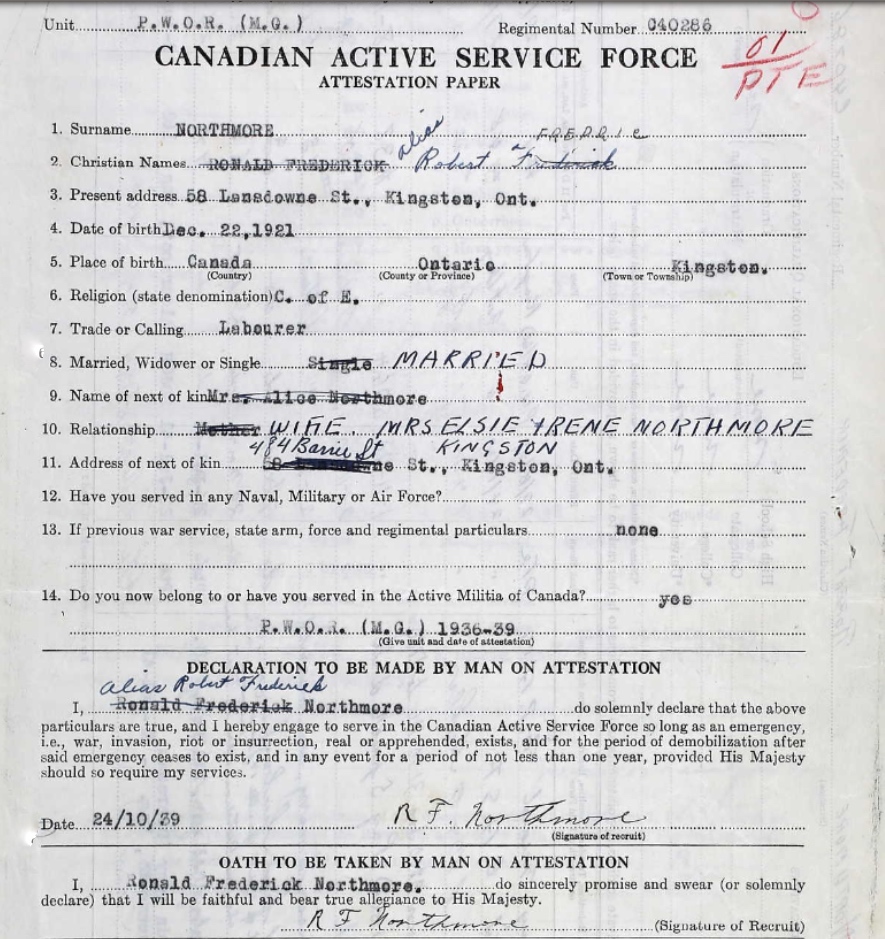 Unit P.W.O.R. (M.G.) Regimental Number C40286
61
PTE
CANADIAN ACTIVE SERVICE FORCE
ATTESTATION PAPER
1. Surname NORTHMORE alias FREDRIC
2. Christian Names RONALD FREDERICK Robert Fredrick
3. Present address 58 Lansdowne St., Kingston, Ont.
4. Date of birth Dec. 22,1921
5. Place of birth Canada Ontario Kingston.
(Country) (County or Province) (Town or Township)
6. Religion (state denomination) C. of E.
7. Trade or Calling Labourer
8. Married, Widower or Single Single MARRIED
9. Name of next of kin Mrs. Alice Northmore
10. Relationship Mother WIFE. MRS ELSIE IRENE NORTHMORE
484 Barrie St KINGSTON
11. Address of next of kin 58 Lansdowne St., Kingston, Ont.
12. Have you served in any Naval, Military or Air Force?
13. If previous war service, state arm, force and regimental particulars none
14. Do you now belong to or have you served in the Active Militia of Canada? yes
P.W.O.R. (M.G.) 1936-39
(Give unit and date of attestation)
DECLARATION TO BE MADE BY MAN ON ATTESTATION
alias Robert Frederick
I, Ronald Frederick Northmore do solemnly declare that the above
particulars are true, and I hereby engage to serve in the Canadian Active Service Force so long as an emergency,
i.e., war, invasion, riot or insurrection, real or apprehended, exists, and for the period of demobilization after
said emergency ceases to exist, and in any event for a period of not less than one year, provided His Majesty
should so require my services.
Date 24/10/39 R F. Northmore
(Signature of recruit)
OATH TO BE TAKEN BY MAN ON ATTESTATION
I, Ronald Frederick Northmore. do sincerely promise and swear (or solemnly
declare) that I will be faithful and bear true allegiance to His Majesty.
R F Northmore (Signature of Recruit)